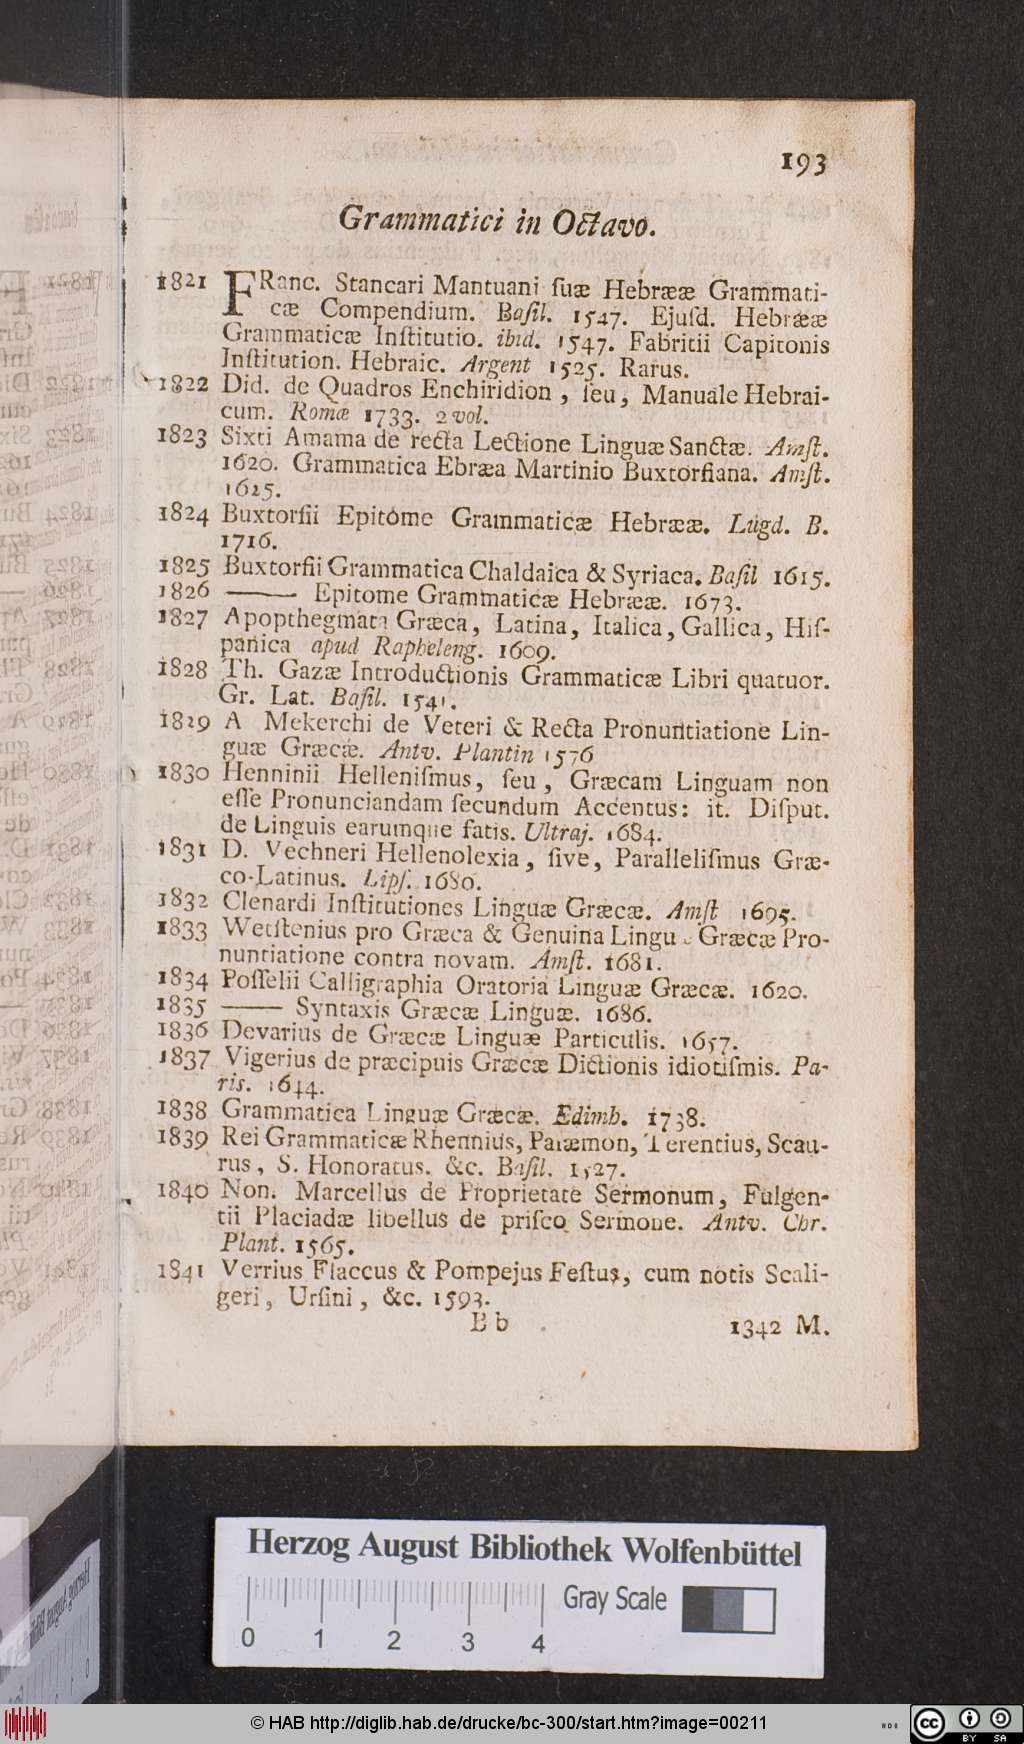 193
Grammatici in Octavo.
1821 FRanc. Stancari Mantuani ſuæ Hebrææ Grammati-
cæ Compendium. Baſil. 1547. Ejuſd. Hebrææ
Grammaticæ Inſtitutio. ibid. 1547. Fabritii Capitonis
Inſtitution. Hebraic. Argent 1525. Rarus.
1822 Did. de Quadros Enchiridion, ſeu, Manuale Hebrai-
cum. Romæ 1733. 2 vol.
1823 Sixti Amama de recta Lectione Linguæ Sanctæ. Amſt.
1620. Grammatica Ebræa Martinio Buxtorfiana. Amſt.
1625.
1824 Buxtorfii Epitome Grammaticæ Hebrææ. Lugd. B.
1716.
1825 Buxtorfii Grammatica Chaldaica & Syriaca. Baſil 1615.
1826 ——— Epitome Grammaticæ Hebrææ. 1673.
1827 Apopthegmata Græca, Latina, Italica, Gallica, Hiſ-
panica apud Rapheleng. 1609.
1828 Th. Gazæ Introductionis Grammaticæ Libri quatuor.
Gr. Lat. Baſil. 1541.
1829 A Mekerchi de Veteri & Recta Pronuntiatione Lin-
guæ Græcæ. Antv. Plantin 1576
1830 Henninii Helleniſmus, ſeu, Græcam Linguam non
eſſe Pronunciandam ſecundum Accentus: it. Diſput.
de Linguis earumque fatis. Ultraj. 1684.
1831 D. Vechneri Hellenolexia, ſive, Paralleliſmus Græ-
co-Latinus. Lipſ. 1680.
1832 Clenardi Inſtitutiones Linguæ Græcæ. Amſt 1695.
1833 Wetſtenius pro Græca & Genuina Lingu Græcæ Pro-
nuntiatione contra novam. Amſt. 1681.
1834 Poſſelii Calligraphia Oratoria Linguæ Græcæ. 1620.
1835 ——— Syntaxis Græcæ Linguæ. 1686.
1836 Devarius de Græcæ Linguæ Particulis. 1657.
1837 Vigerius de præcipuis Græcæ Dictionis idiotiſmis. Pa-
ris. 1644.
1838 Grammatica Linguæ Græcæ. Edimb. 1738.
1839 Rei Grammaticæ Rhennius, Palæmon, Terentius, Scau-
rus, S. Honoratus. &c. Baſil. 1527.
1840 Non. Marcellus de Proprietate Sermonum, Fulgen-
tii Placiadæ libellus de priſco Sermone. Antv. Chr.
Plant. 1565.
1841 Verrius Flaccus & Pompejus Feſtus, cum notis Scali-
geri, Urſini, &c. 1593.
B b
1342 M.
Herzog August Bibliothek Wolfenbüttel
Gray Scale
0 1 2 3 4
© HAB http://diglib.hab.de/drucke/bc-300/start.htm?image=00211
cc BY SA